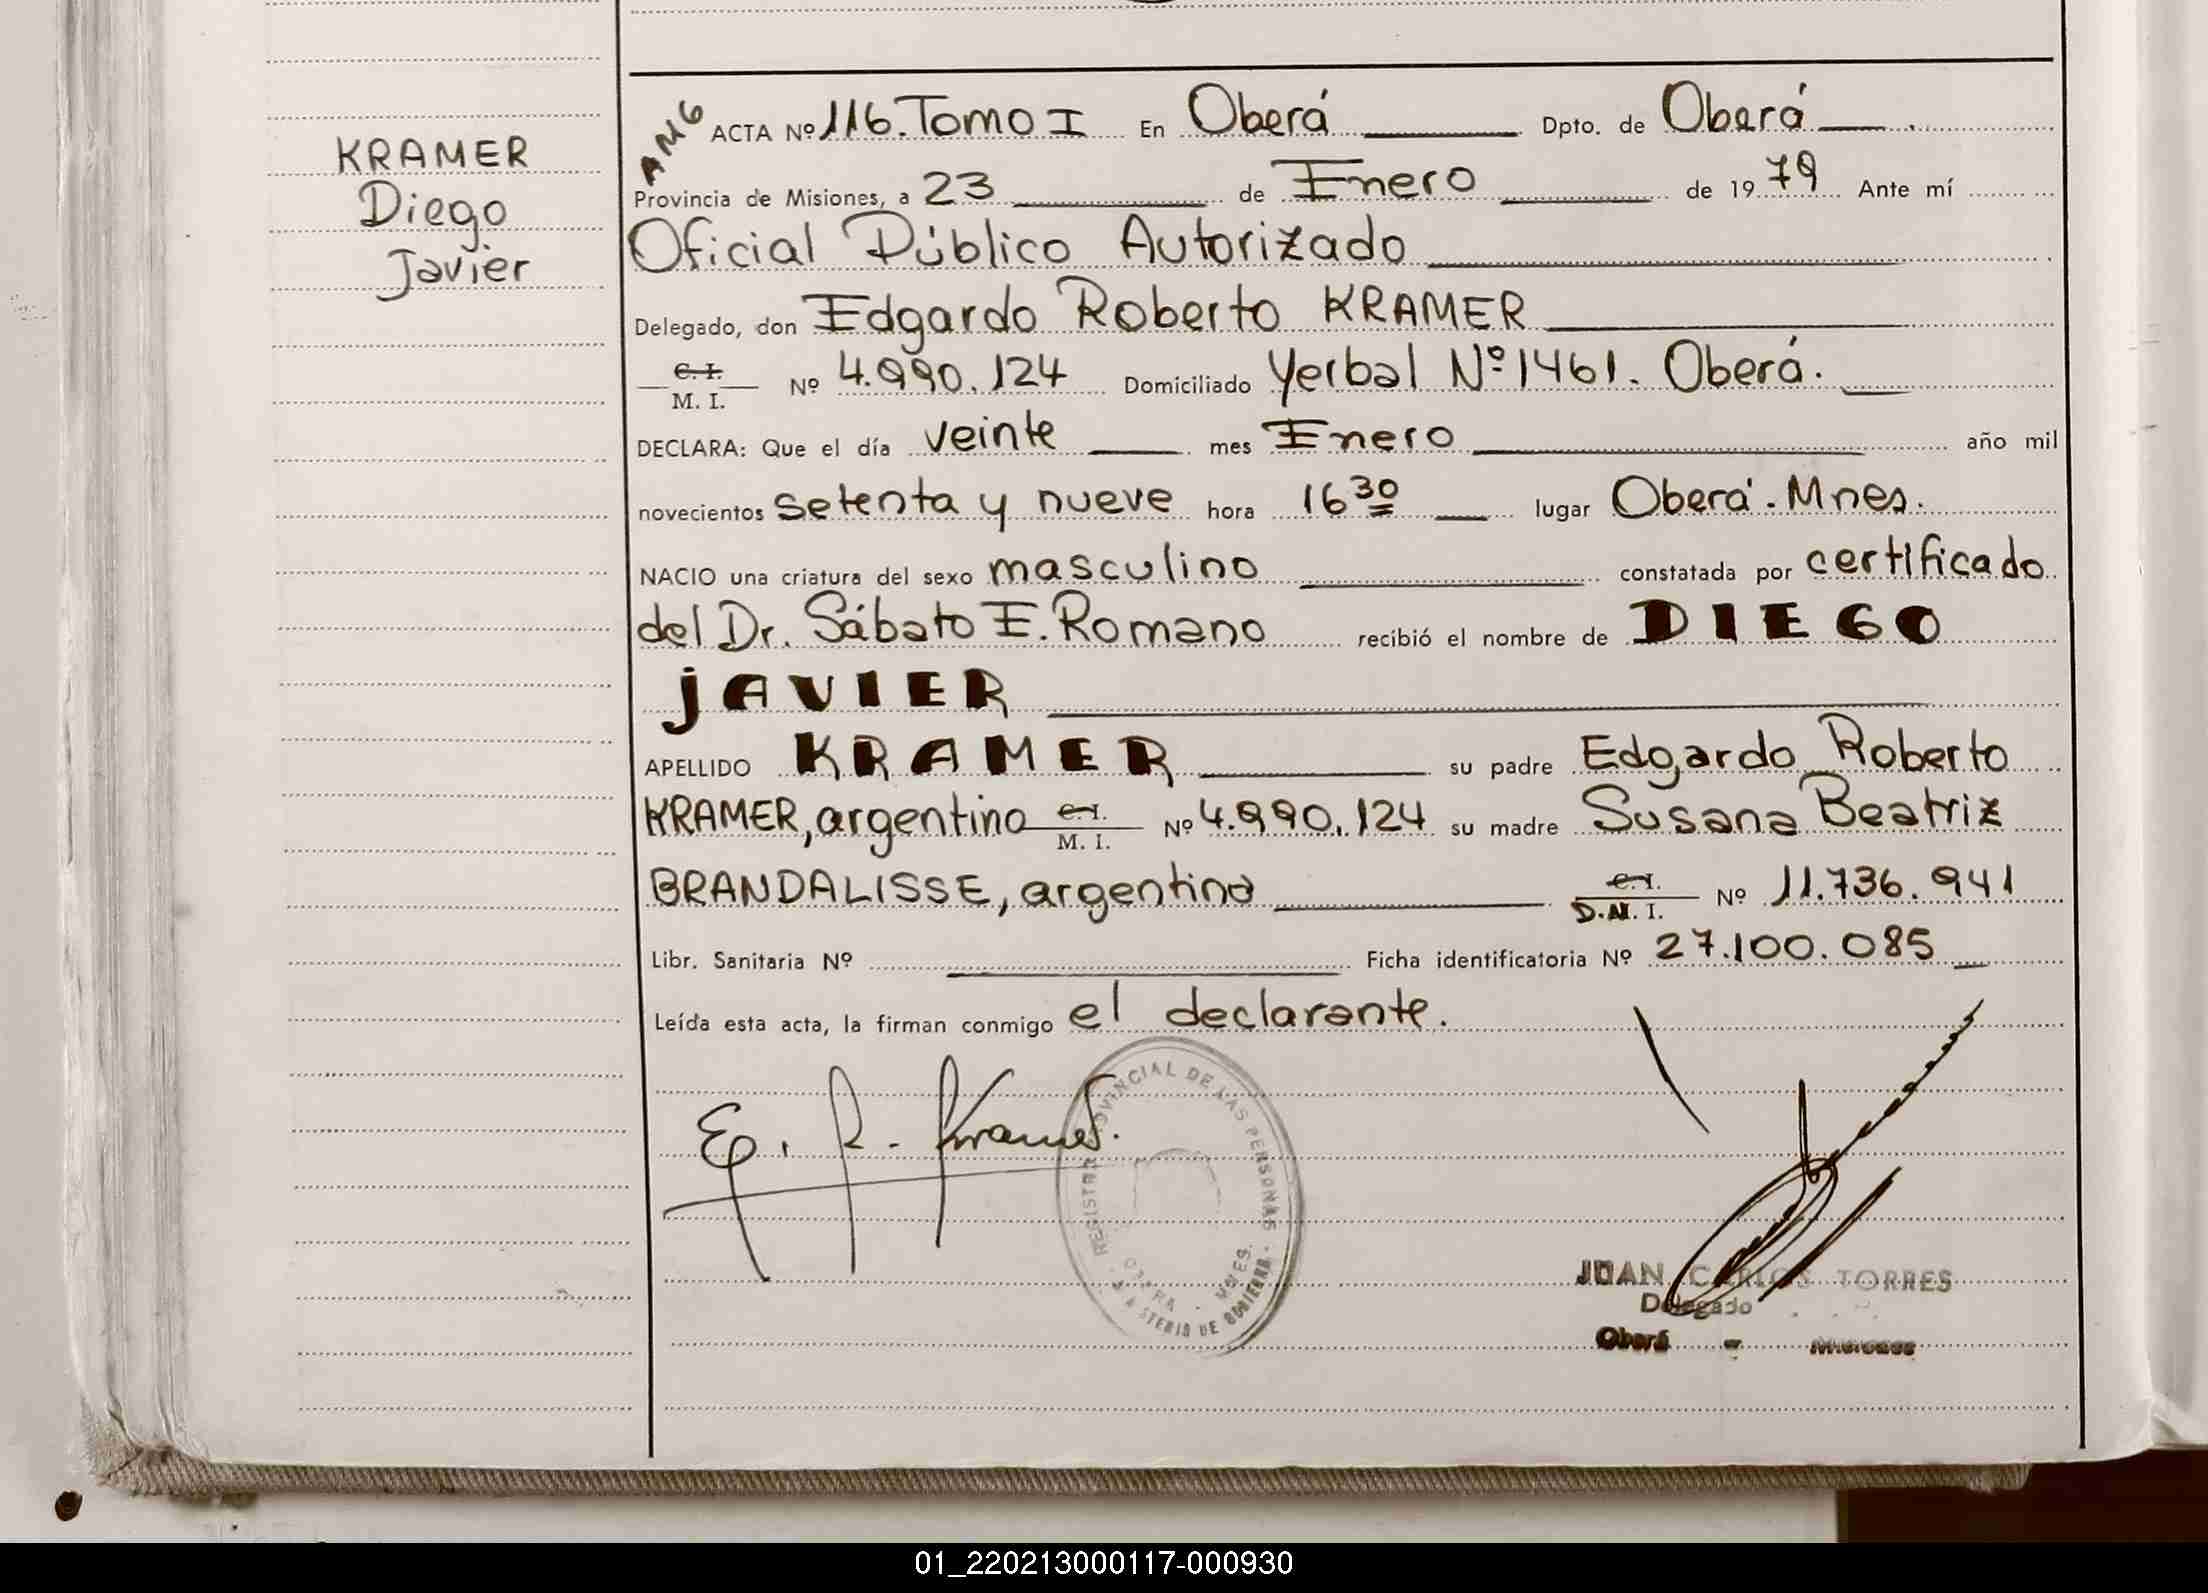 KRAMER
Diego
Javier
ACTA Nº 116. Tomo I En Oberá Dpto. de Oberá
Provincia de Misiones, a 23 de Enero de 1979 Ante mí
Oficial Público Autorizado
Delegado, don Edgardo Roberto KRAMER
C. I. M. I. Nº 4.990.124 Domiciliado Yerbal Nº 1461. Oberá.
DECLARA: Que el día veinte mes Enero año mil
novecientos setenta y nueve hora 16 30 lugar Oberá. Mnes.
NACIO una criatura del sexo masculino constatada por certificado
del Dr. Sábato E. Romano recibió el nombre de DIEGO
JAVIER
APELLIDO KRAMER su padre Edgardo Roberto
KRAMER, argentino C. I. M. I. Nº 4.990.124 su madre Susana Beatriz
BRANDALISSE, argentina C. I. D.N. I. Nº 11.736.941
Libr. Sanitaria Nº Ficha identificatoria Nº 27.100.085
Leída esta acta, la firman conmigo el declarante.
E. R. Kramer.
REGISTRO PROVINCIAL DE LAS PERSONAS
OBERA - MNES.
DE GOBIERNO
JUAN CARLOS TORRES
Delegado
Oberá - Misiones
01_220213000117-000930